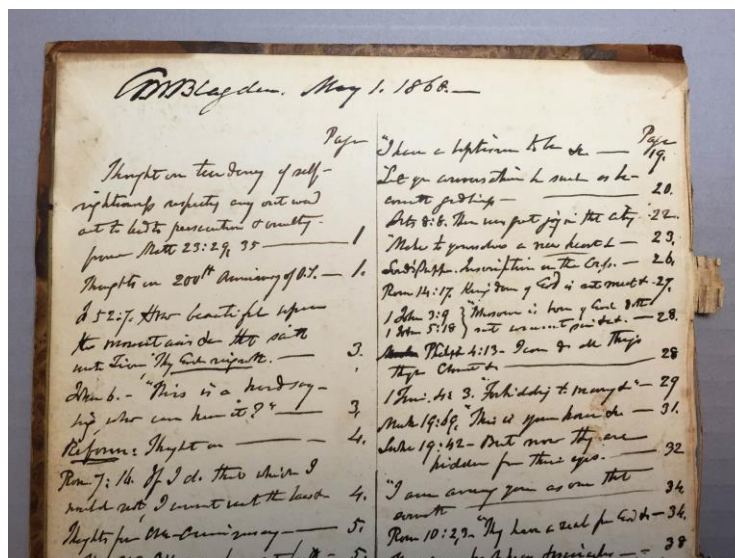 GWBlagden. May 1. 1868.—
Page
Thought on tendency of self-
righteousness respecting any outward
act to lead to persecution & cruelty
from Matt 23:29, 35 — 1
Thoughts on 200th Anniversary of O.S. — 1.
Is 52:7. How beautiful upon
the mountains &c that saith
unto Zion, Thy God reigneth. — 3.
John 6. — "This is a hard say-
ing, who can hear it?" — 3,
Reform: Thought on — 4.
Rom 7:16. If I do that which I
would not, I consent unto the law &c 4.
Thoughts for Anniversary — 5.
Page
"I have a baptism to be &c — 19.
Let your conversation be such as be-
cometh godliness — 20.
Acts 8:8. There was great joy in the city 22.
"Make to yourselves a new heart &c — 23.
Lord's Supper. Inscription on the Cup. — 26.
Rom 14:17. Kingdom of God is not meat &c 27.
1 John 3:9 } "Whosoever is born of God doth
1 John 5:18 } not commit sin &c. — 28.
Philip 4:13 — I can do all things
through Christ &c 28
1 Tim. 4: 3. "Forbidding to marry &c" — 29
"This is your hour &c — 31.
Luke 19:42 — But now they are
hidden from thine eyes. — 32
"I am among you as one that
serveth 34.
Rom 10:2,3 — "They have a zeal for God &c — 34.
38